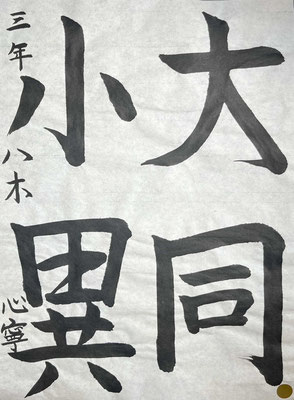 大同
小異
三年 八木 心寧